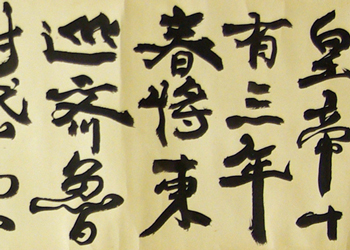 皇帝十
有三年
春將東
巡齊魯